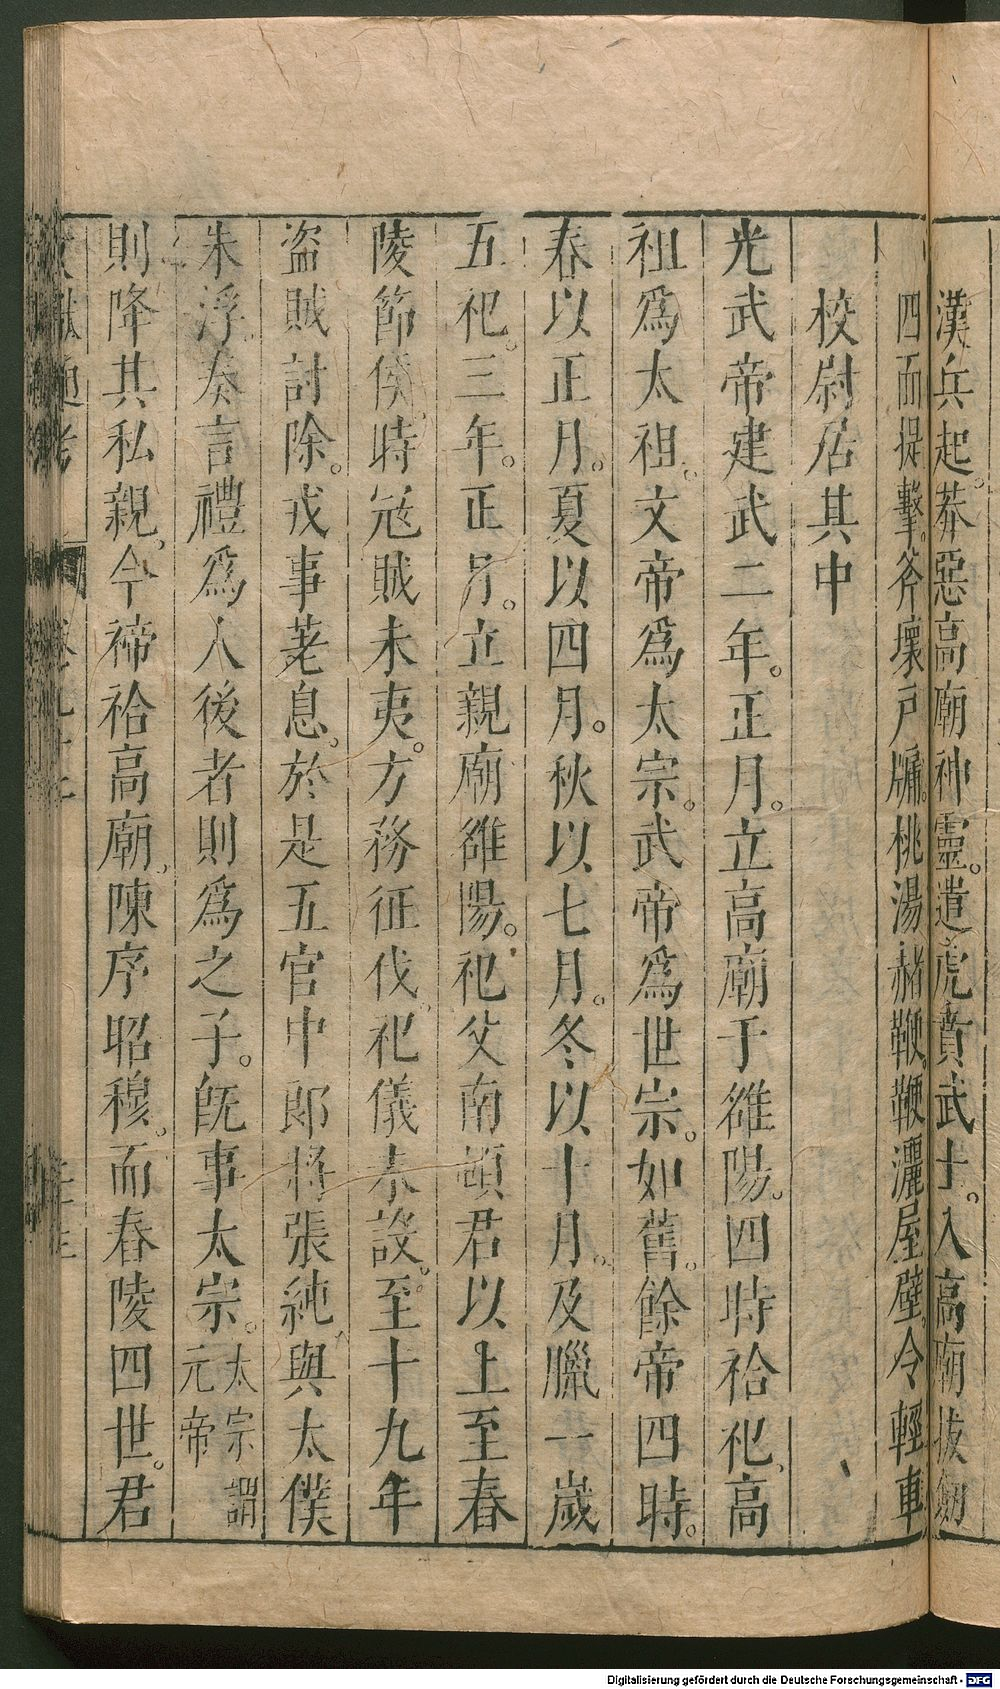 漢兵起。莽惡高廟神靈。遣虎賁武士。入高廟拔劒
四面提擊。斧壞戸牖。桃湯赭鞭。鞭灑屋壁。令輕車
校尉居其中
光武帝建武二年。正月。立高廟于雒陽。四時祫祀、高
祖爲太祖。文帝爲太宗。武帝爲世宗。如舊。餘帝四時。
春以正月。夏以四月。秋以七月。冬以十月。及臘一歲
五祀。三年。正月。立親廟雒陽。祀父南頓君以上至春
陵節侯。時冦賊未夷。方務征伐。祀儀未設。至十九年
盜賊討除。戎事差息。於是五官中郎將張純。與太僕
朱浮。奏言禮爲人後者則爲之子。旣事太宗。太宗謂
元帝
則降其私親。今禘祫高廟。陳序昭穆。而春陵四世。君
獻通考
Digitalisierung gefördert durch die Deutsche Forschungsgemeinschaft - DFG